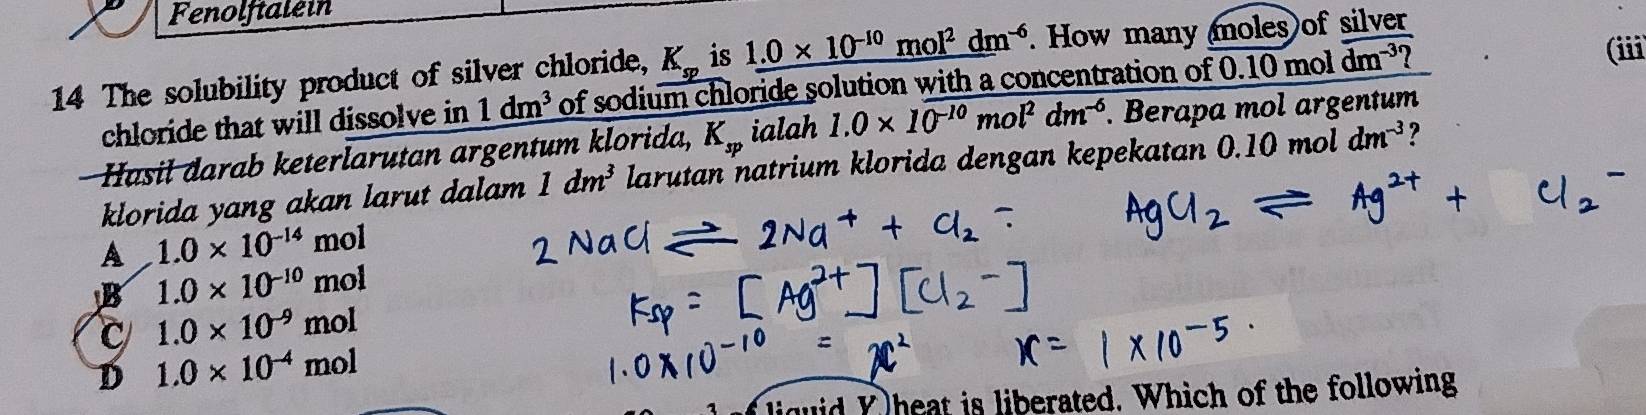 Fenolftalein
14 The solubility product of silver chloride, Ksp is 1.0 × 10⁻¹⁰ mol² dm⁻⁶. How many moles of silver
chloride that will dissolve in 1 dm³ of sodium chloride solution with a concentration of 0.10 mol dm⁻³?
(iii
Hasil darab keterlarutan argentum klorida, Ksp ialah 1.0 × 10⁻¹⁰ mol² dm⁻⁶. Berapa mol argentum
klorida yang akan larut dalam 1 dm³ larutan natrium klorida dengan kepekatan 0.10 mol dm⁻³?
A 1.0 × 10⁻¹⁴ mol
B 1.0 × 10⁻¹⁰ mol
C 1.0 × 10⁻⁹ mol
D 1.0 × 10⁻⁴ mol
2 NaCl ⇌ 2Na⁺ + Cl₂⁻
AgCl₂ ⇌ Ag²⁺ + Cl₂⁻
Ksp = [Ag²⁺] [Cl₂⁻]
1.0 × 10⁻¹⁰ = x²
x = 1 × 10⁻⁵.
liquid Y heat is liberated. Which of the following